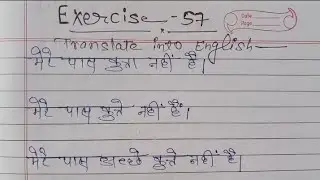 Exercise-57
Date
Page
Translate into English
मेरे पास कुत्ता नहीं है।
मेरे पास कुत्ते नहीं हैं।
मेरे पास अच्छे कुत्ते नहीं हैं।